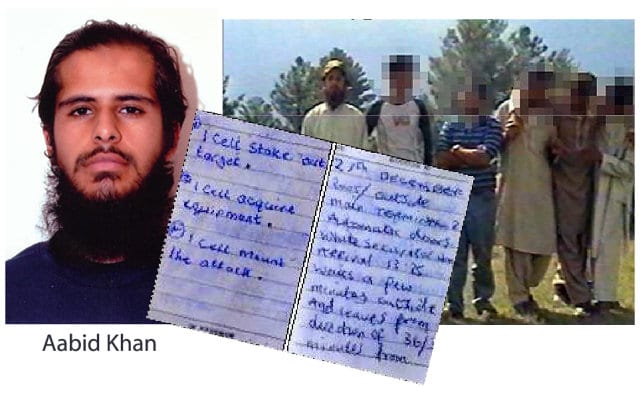 1 Cell stake out
target.
1 Cell acquire
equipment.
1 Cell mount
the attack.
27th DECEMBER
2005/ outside
main terminal 2
Automatic doors
White security van
Arrival 13 25
Waits a few
minutes outside
And leaves from
direction of
minutes from
Aabid Khan